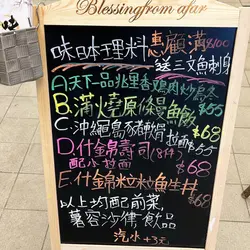 Blessing from afar
味日本料理 惠顧滿$100
送三文魚刺身
A:天下一品兆里香雞肉炒烏冬 $55
B:滿燒原條鰻魚飯 $68
C:沖繩島豬軟骨拉麵 $55
D:什錦壽司(8件) $68
配小拉麵
E:什錦粒粒魚生丼 $68
以上均配前菜,
薯容沙律,飲品
汽水+3元